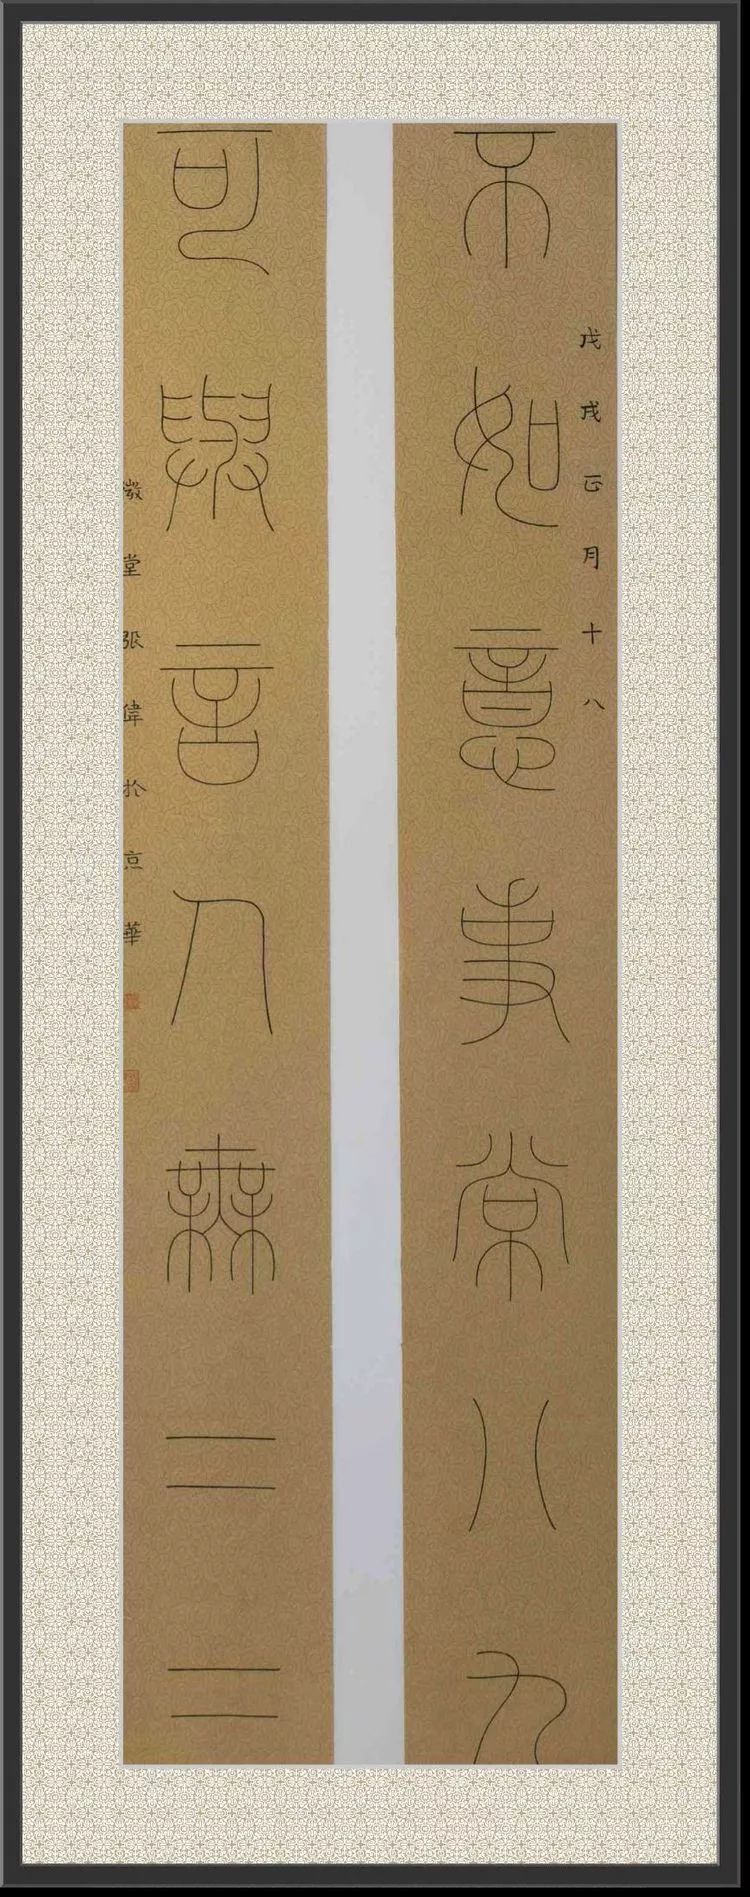 戊戌正月十八
不如意事常八九
可與言人無二三
堂張偉於京華